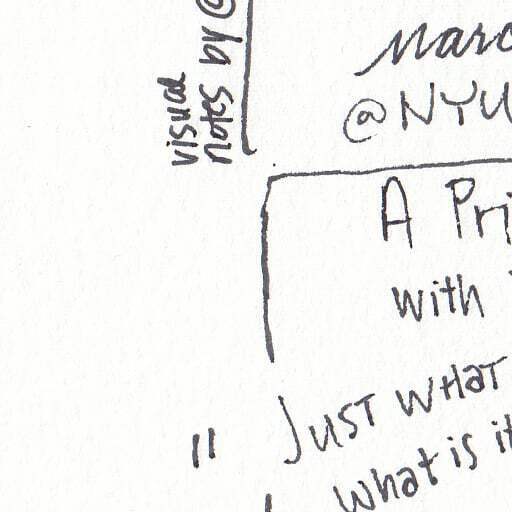 visual
notes by @
Marc
@NYU
A Pri
with
" Just what
what is it